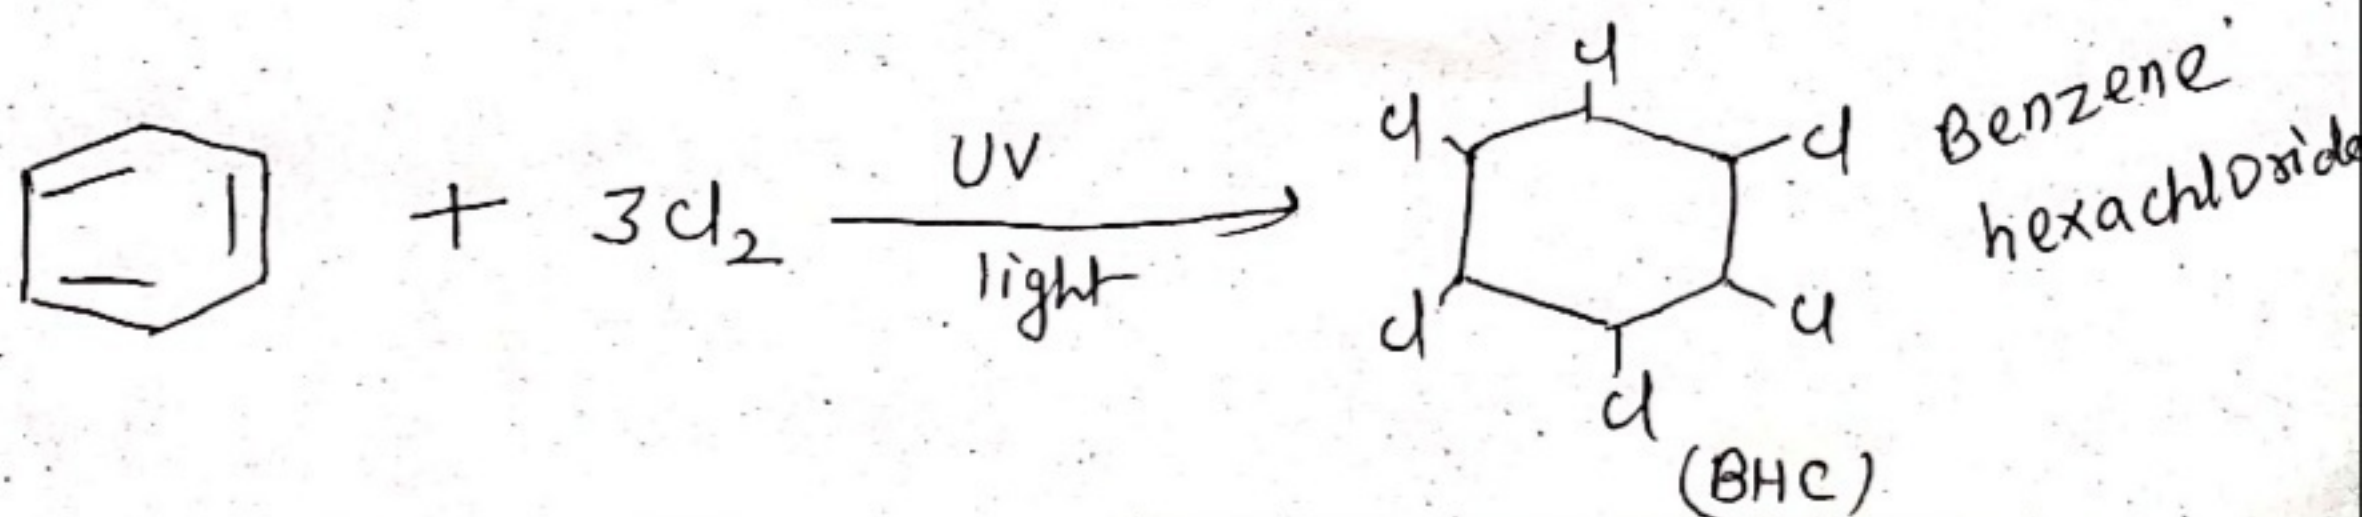 + 3Cl2
UV
light
Cl
Cl
Cl
Cl
Cl
Cl
Benzene
hexachloride
(BHC)